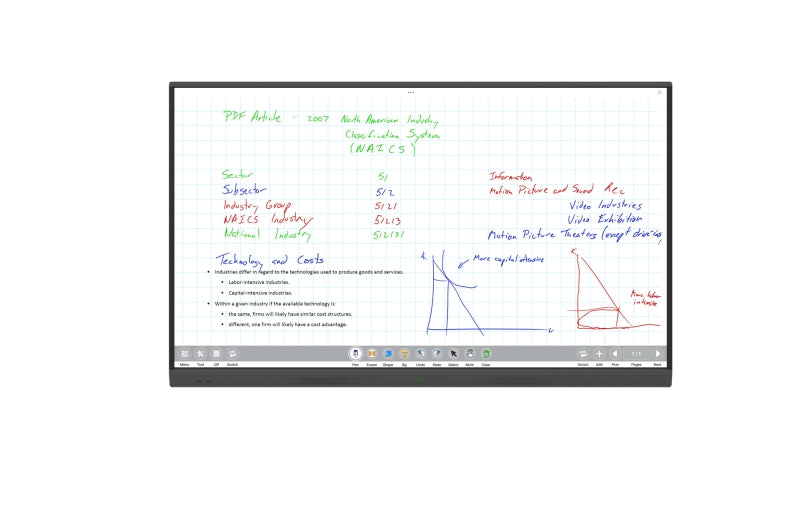 PDF Article - 2007 North American Industry
Classification System
(NAICS)
Sector 51 Information
Subsector 512 Motion Picture and Sound Rec
Industry Group 5121 Video Industries
NAICS Industry 51213 Video Exhibition
National Industry 512131 Motion Picture Theaters (except drive-ins
Technology and Costs
K
More capital intensive
K
More labor
intensive
• Industries differ in regard to the technologies used to produce goods and services.
• Labor-intensive industries.
• Capital-intensive industries.
• Within a given industry if the available technology is:
• the same, firms will likely have similar cost structures.
• different, one firm will likely have a cost advantage.
1/1
Menu Tool Off Switch Pen Eraser Shape Undo Redo Select Multi Clear Switch Add Prev Pages Next